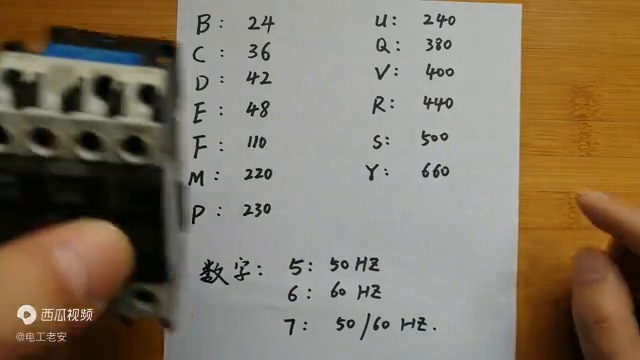 B: 24
C: 36
D: 42
E: 48
F: 110
M: 220
P: 230
U: 240
Q: 380
V: 400
R: 440
S: 500
Y: 660
数字: 5: 50 HZ
6: 60 HZ
7: 50/60 HZ.
西瓜视频
@电工老安